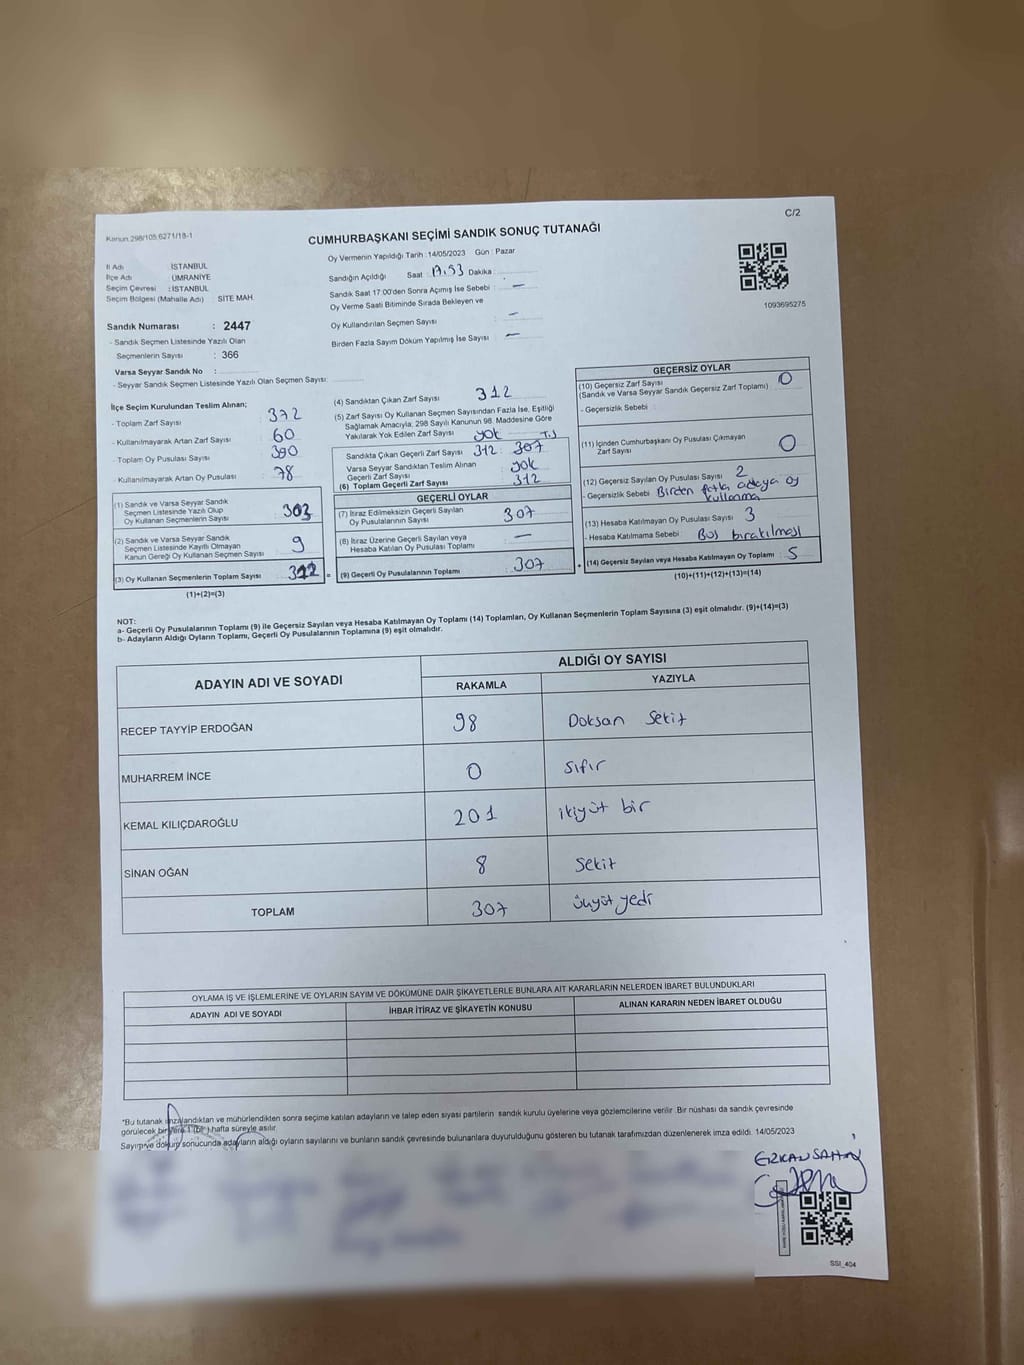 C/2
Kanun 298/105,6271/18-1
CUMHURBAŞKANI SEÇİMİ SANDIK SONUÇ TUTANAĞI
Oy Vermenin Yapıldığı Tarih :14/05/2023 Gün : Pazar
İl Adı İSTANBUL
İlçe Adı ÜMRANİYE
Seçim Çevresi : İSTANBUL
Seçim Bölgesi (Mahalle Adı) SİTE MAH.
Sandığın Açıldığı Saat 17.53 Dakika :
Sandık Saat 17:00'den Sonra Açımış İse Sebebi : —
Oy Verme Saati Bitiminde Sırada Bekleyen ve
Oy Kullandırılan Seçmen Sayısı —
Birden Fazla Sayım Döküm Yapılmış İse Sayısı : —
1093695275
Sandık Numarası : 2447
- Sandık Seçmen Listesinde Yazılı Olan
Seçmenlerin Sayısı : 366
Varsa Seyyar Sandık No :
- Seyyar Sandık Seçmen Listesinde Yazılı Olan Seçmen Sayısı:
İlçe Seçim Kurulundan Teslim Alınan;
- Toplam Zarf Sayısı : 372
- Kullanılmayarak Artan Zarf Sayısı : 60
- Toplam Oy Pusulası Sayısı : 390
- Kullanılmayarak Artan Oy Pusulası : 78
(1) Sandık ve Varsa Seyyar Sandık
Seçmen Listesinde Yazılı Olup
Oy Kullanan Seçmenlerin Sayısı : 303
(2) Sandık ve Varsa Seyyar Sandık
Seçmen Listesinde Kayıtlı Olmayan
Kanun Gereği Oy Kullanan Seçmen Sayısı : 9
(3) Oy Kullanan Seçmenlerin Toplam Sayısı : 312 =
(1)+(2)=(3)
(4) Sandıktan Çıkan Zarf Sayısı : 312
(5) Zarf Sayısı Oy Kullanan Seçmen Sayısından Fazla İse, Eşitliği
Sağlamak Amacıyla; 298 Sayılı Kanunun 98. Maddesine Göre
Yakılarak Yok Edilen Zarf Sayısı : yok
Sandıkta Çıkan Geçerli Zarf Sayısı 312 : 307
Varsa Seyyar Sandıktan Teslim Alınan
Geçerli Zarf Sayısı : yok
(6) Toplam Geçerli Zarf Sayısı : 312
GEÇERLİ OYLAR
(7) İtiraz Edilmeksizin Geçerli Sayılan
Oy Pusulalarının Sayısı : 307
(8) İtiraz Üzerine Geçerli Sayılan veya
Hesaba Katılan Oy Pusulası Toplamı : —
(9) Geçerli Oy Pusulalarının Toplamı : 307 +
GEÇERSİZ OYLAR
(10) Geçersiz Zarf Sayısı
(Sandık ve Varsa Seyyar Sandık Geçersiz Zarf Toplamı) : 0
- Geçersizlik Sebebi :
(11) İçinden Cumhurbaşkanı Oy Pusulası Çıkmayan
Zarf Sayısı : 0
(12) Geçersiz Sayılan Oy Pusulası Sayısı : 2
- Geçersizlik Sebebi : Birden fazla adaya oy
kullanma
(13) Hesaba Katılmayan Oy Pusulası Sayısı : 3
- Hesaba Katılmama Sebebi : Boş bırakılması
(14) Geçersiz Sayılan veya Hesaba Katılmayan Oy Toplamı : 5
(10)+(11)+(12)+(13)=(14)
NOT:
a- Geçerli Oy Pusulalarının Toplamı (9) ile Geçersiz Sayılan veya Hesaba Katılmayan Oy Toplamı (14) Toplamları, Oy Kullanan Seçmenlerin Toplam Sayısına (3) eşit olmalıdır. (9)+(14)=(3)
b- Adayların Aldığı Oyların Toplamı, Geçerli Oy Pusulalarının Toplamına (9) eşit olmalıdır.
ADAYIN ADI VE SOYADI
ALDIĞI OY SAYISI
RAKAMLA YAZIYLA
RECEP TAYYİP ERDOĞAN 98 Doksan Sekiz
MUHARREM İNCE 0 sıfır
KEMAL KILIÇDAROĞLU 201 ikiyüz bir
SİNAN OĞAN 8 Sekiz
TOPLAM 307 üçyüz yedi
OYLAMA İŞ VE İŞLEMLERİNE VE OYLARIN SAYIM VE DÖKÜMÜNE DAİR ŞİKAYETLERLE BUNLARA AİT KARARLARIN NELERDEN İBARET BULUNDUKLARI
ADAYIN ADI VE SOYADI İHBAR İTİRAZ VE ŞİKAYETİN KONUSU ALINAN KARARIN NEDEN İBARET OLDUĞU
*Bu tutanak imzalandıktan ve mühürlendikten sonra seçime katılan adayların ve talep eden siyasi partilerin sandık kurulu üyelerine veya gözlemcilerine verilir. Bir nüshası da sandık çevresinde
görülecek bir yere 1 (bir) hafta süreyle asılır.
Sayım ve döküm sonucunda adayların aldığı oyların sayılarını ve bunların sandık çevresinde bulunanlara duyurulduğunu gösteren bu tutanak tarafımızdan düzenlenerek imza edildi. 14/05/2023
ERKAN SAHİN
SSI_404